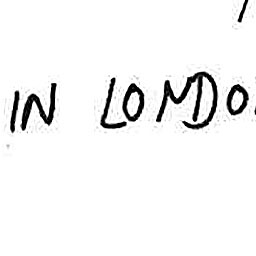 IN LONDO